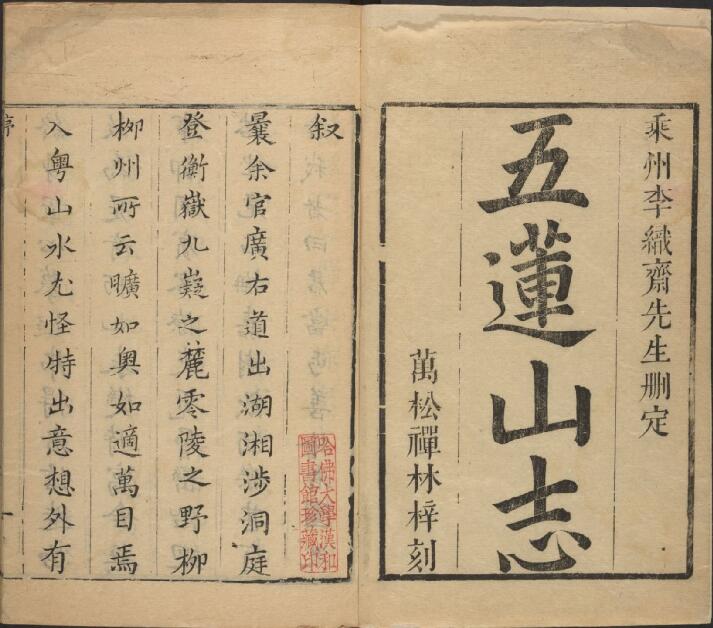 乘州李織齋先生刪定
五蓮山志
萬松禪林梓刻
叙
曩余官廣右道出湖湘涉洞庭
登衡嶽九嶷之麓零陵之野柳
柳州所云曠如奧如適萬目焉
入粵山水尤怪特出意想外有
哈佛大學漢和
圖書館珍藏印
序
一